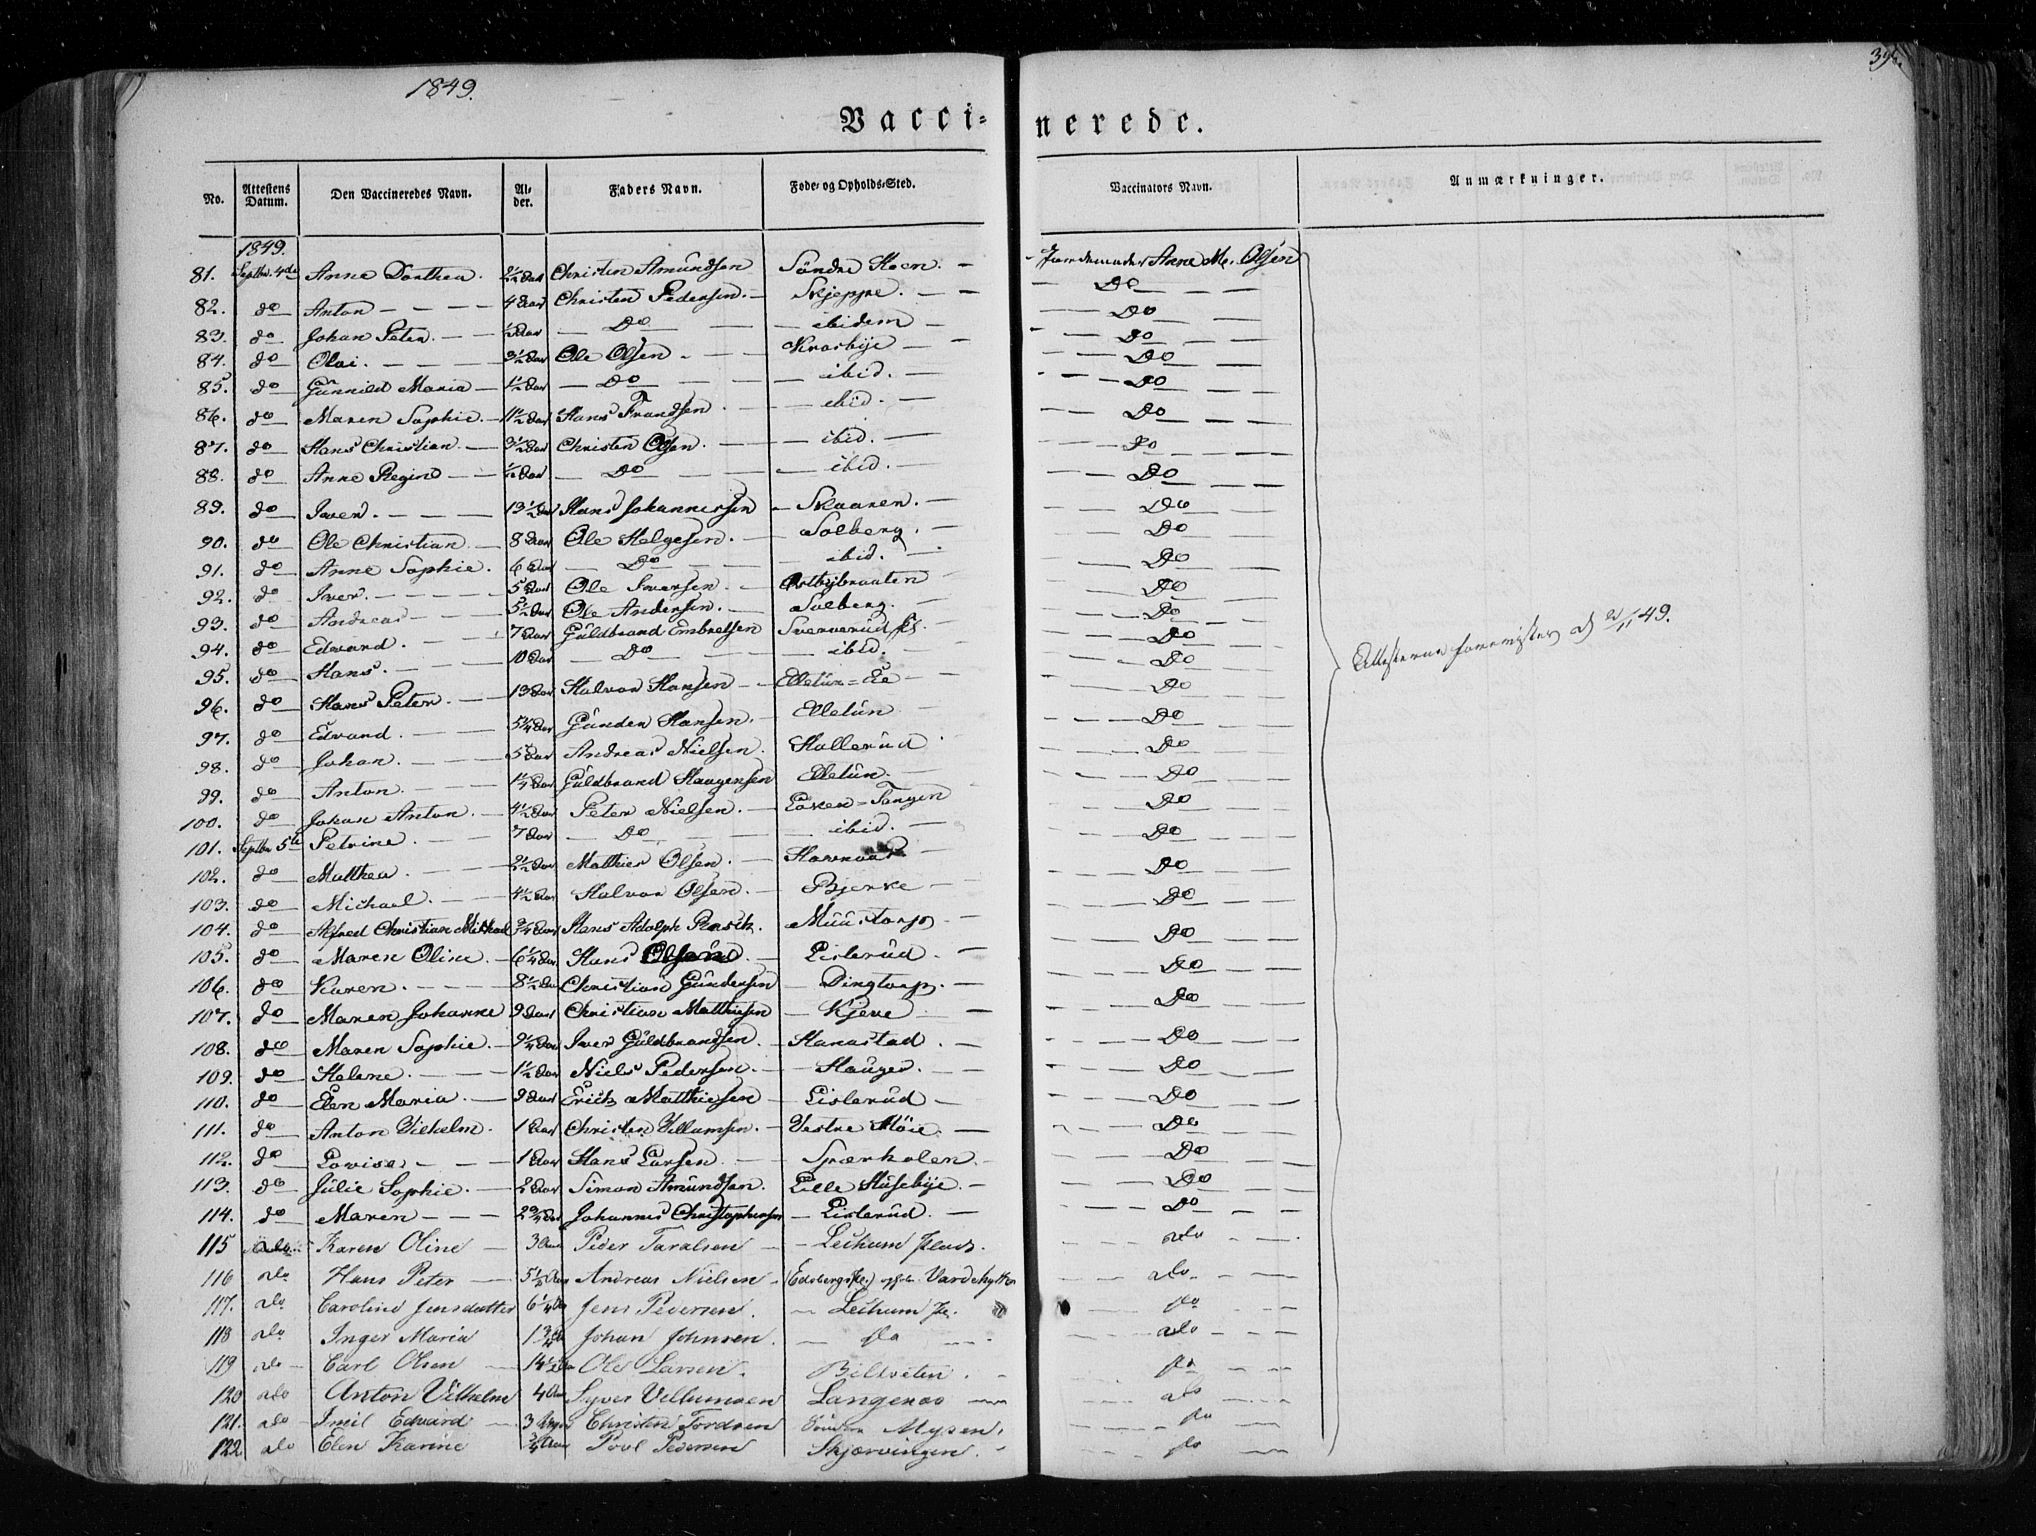 1849.
396.
Vacci- nerede.
No. Attestens Datum. Den Vaccineredes Navn. Alder. Faders Navn. Føde- og Opholds-Sted. Vaccinators Navn. Anmærkninger.
1849.
81. Septbr. 4de Anne Dorthea. 2½ Aar Christen Amundsen Søndre Steen. Jordemoder Anne M. Olsen
82. do Anton 4 Aar Christen Pedersen. Skjeppe. Do
83. do Johan Peter. ½ Aar Do ibidem Do
84. do Olai. 3½ Aar Ole Olsen Krosbye Do
85. do Gunnild Maria 1½ Aar Do ibid. Do
86. do Maren Sophie. 11½ Aar Hans Frandsen ibid. Do
87. do Hans Christian. 3½ Aar Christen Olsen. ibid. Do
88. do Anne Regine ½ Aar Do ibid. Do
89. do Iver. 13½ Aar Hans Johannessen Skaaren. Do
90. do Ole Christian. 8 Aar Ole Helgesen. Solberg. Do
91. do Anne Sophie. 6 Aar Do ibid. Do
92. do Iver. 5 Aar Ole Iversen Østbybraaten Do
93. do Andreas 5½ Aar Ole Andersen. Solberg. Do
94. do Edvard. 7 Aar Guldbrand Embretsen Sververud Do
95. do Hans. 10 Aar Do ibid. Do
96. do Hans Peter. 13 Aar Halvor Hansen Elletun-Eie Do
97. do Edvard. 5¼ Aar Gunder Hansen. Elletun Do
98. do Johan. 5 Aar Andreas Nielsen. Hallerud Do
99. do Anton. 1¼ Aar Guldbrand Haagensen Elletun. Do
100. do Johan Anton. 4½ Aar Peter Nielsen. Tangen Do
101. Septbr 5te Petrine. 7 Aar Do ibid. Do
102. do Matthea. 2½ Aar Mathies Olsen. Do
103. do Michael. 4½ Aar Halvor Olsen. Bjerke Do
104. do Alfred Christian Michael ¾ Aar Hans Adolph Muustorp Do
105. do Maren Oline. 6¼ Aar Hans Olsen. Lislerud. Do
106. do Karen. 8½ Aar Christian Gundersen Dingtorp. Do
107. do Maren Johanne 9 Aar Christian Matthiesen Kjeve Do
108. do Maren Sophie. 9¼ Aar Iver Guldbrandsen. Hanastad. Do
109. do Helene. 1½ Aar Niels Pedersen. Hauger. Do
110. do Elen Maria. 9 Aar Erich Matthiesen Lislerud Do
111. do Anton Vilhelm. 1 Aar Christen Villumsen. Vestre Høie. Do
112. do Lovise. 1 Aar Hans Larsen. Spærholen. Do
113. do Julie Sophie. 2 Aar Simon Amundsen. Lille Huseby. Do
114. do Maren 2¾ Aar Johannes Christophersen Lislerud. Do
115 do Karen Oline 3 Aar Peder Taralsen Lechum Plads. do
116 do Hans Peter 5½ Aar Andreas Nielsen Vardehytten do
117. do Caroline Jensdatter 6¼ Aar Jens Pedersen. Lechum Pl. do
118 do Inger Maria 1¾ Johan Johnsen. do do
119 do Carl Olsen 14½ Ole Larsen. Biltvéten. do
120 do Anton Vilhelm 4 Aar Syver Vellumsen Langenæs do
121. do Imil Edvard 3 Christen Tordsen Søndre Mysen. do
122 do Elen Karine ¾ Aar Povl Pedersen Skjærvingen. do
Attesterne foreviste d. 2/11 49.